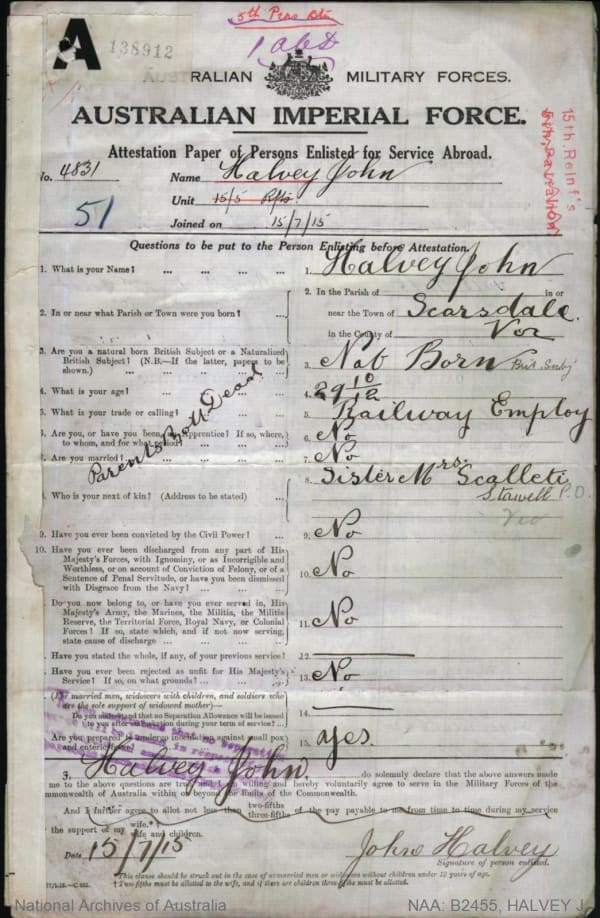 5th Pnrs Btn
A
138912
AUSTRALIAN MILITARY FORCES.
AUSTRALIAN IMPERIAL FORCE.
Attestation Paper of Persons Enlisted for Service Abroad.
15th. Reinf's
No. 4831 Name Halvey John
Unit 15/5 Rfts.
51
Joined on 15/7/15
Questions to be put to the Person Enlisting before Attestation.
1. What is your Name? ... ... ... ... 1. Halvey John
2. In or near what Parish or Town were you born? ... 2. In the Parish of in or
near the Town of Scarsdale.
in the County of Vic
3. Are you a natural born British Subject or a Naturalized British Subject? (N.B.—If the latter, papers to be shown.) ... 3. Nat Born Brit. Subj
4. What is your age? ... 4. 29 10/12
5. What is your trade or calling? ... 5. Railway Employ
6. Are you, or have you been, an Apprentice? If so, where, to whom, and for what period? 6. No
7. Are you married? ... 7. No
Parents Both Dead
8. Who is your next of kin? (Address to be stated) ... 8. Sister Mrs. Scalleti
Stawell P.O.
Vic
9. Have you ever been convicted by the Civil Power? ... 9. No
10. Have you ever been discharged from any part of His Majesty's Forces, with Ignominy, or as Incorrigible and Worthless, or on account of Conviction of Felony, or of a Sentence of Penal Servitude, or have you been dismissed with Disgrace from the Navy? ... 10. No
Do you now belong to, or have you ever served in, His Majesty's Army, the Marines, the Militia, the Militia Reserve, the Territorial Force, Royal Navy, or Colonial Forces? If so, state which, and if not now serving, state cause of discharge ... 11. No
Have you stated the whole, if any, of your previous service? 12.
Have you ever been rejected as unfit for His Majesty's Service? If so, on what grounds? ... 13. No
(For married men, widowers with children, and soldiers who are the sole support of widowed mother)—
Do you understand that no Separation Allowance will be issued to you after embarkation during your term of service? ... 14.
Are you prepared to undergo inoculation against small pox and enteric fever? 15. yes.
I, Halvey John. do solemnly declare that the above answers made
me to the above questions are true, and I am willing and hereby voluntarily agree to serve in the Military Forces of the
mmonwealth of Australia within or beyond the limits of the Commonwealth.
And I further agree to allot not less than two-fifths three-fifths of the pay payable to me from time to time during my service
the support of my wife.*† wife and children.
Date 15/7/15 John Halvey
Signature of person enlisted.
*This clause should be struck out in the case of unmarried men or widowers without children under 18 years of age.
† Two-fifths must be allotted to the wife, and if there are children three-fifths must be allotted.
National Archives of Australia NAA: B2455, HALVEY J